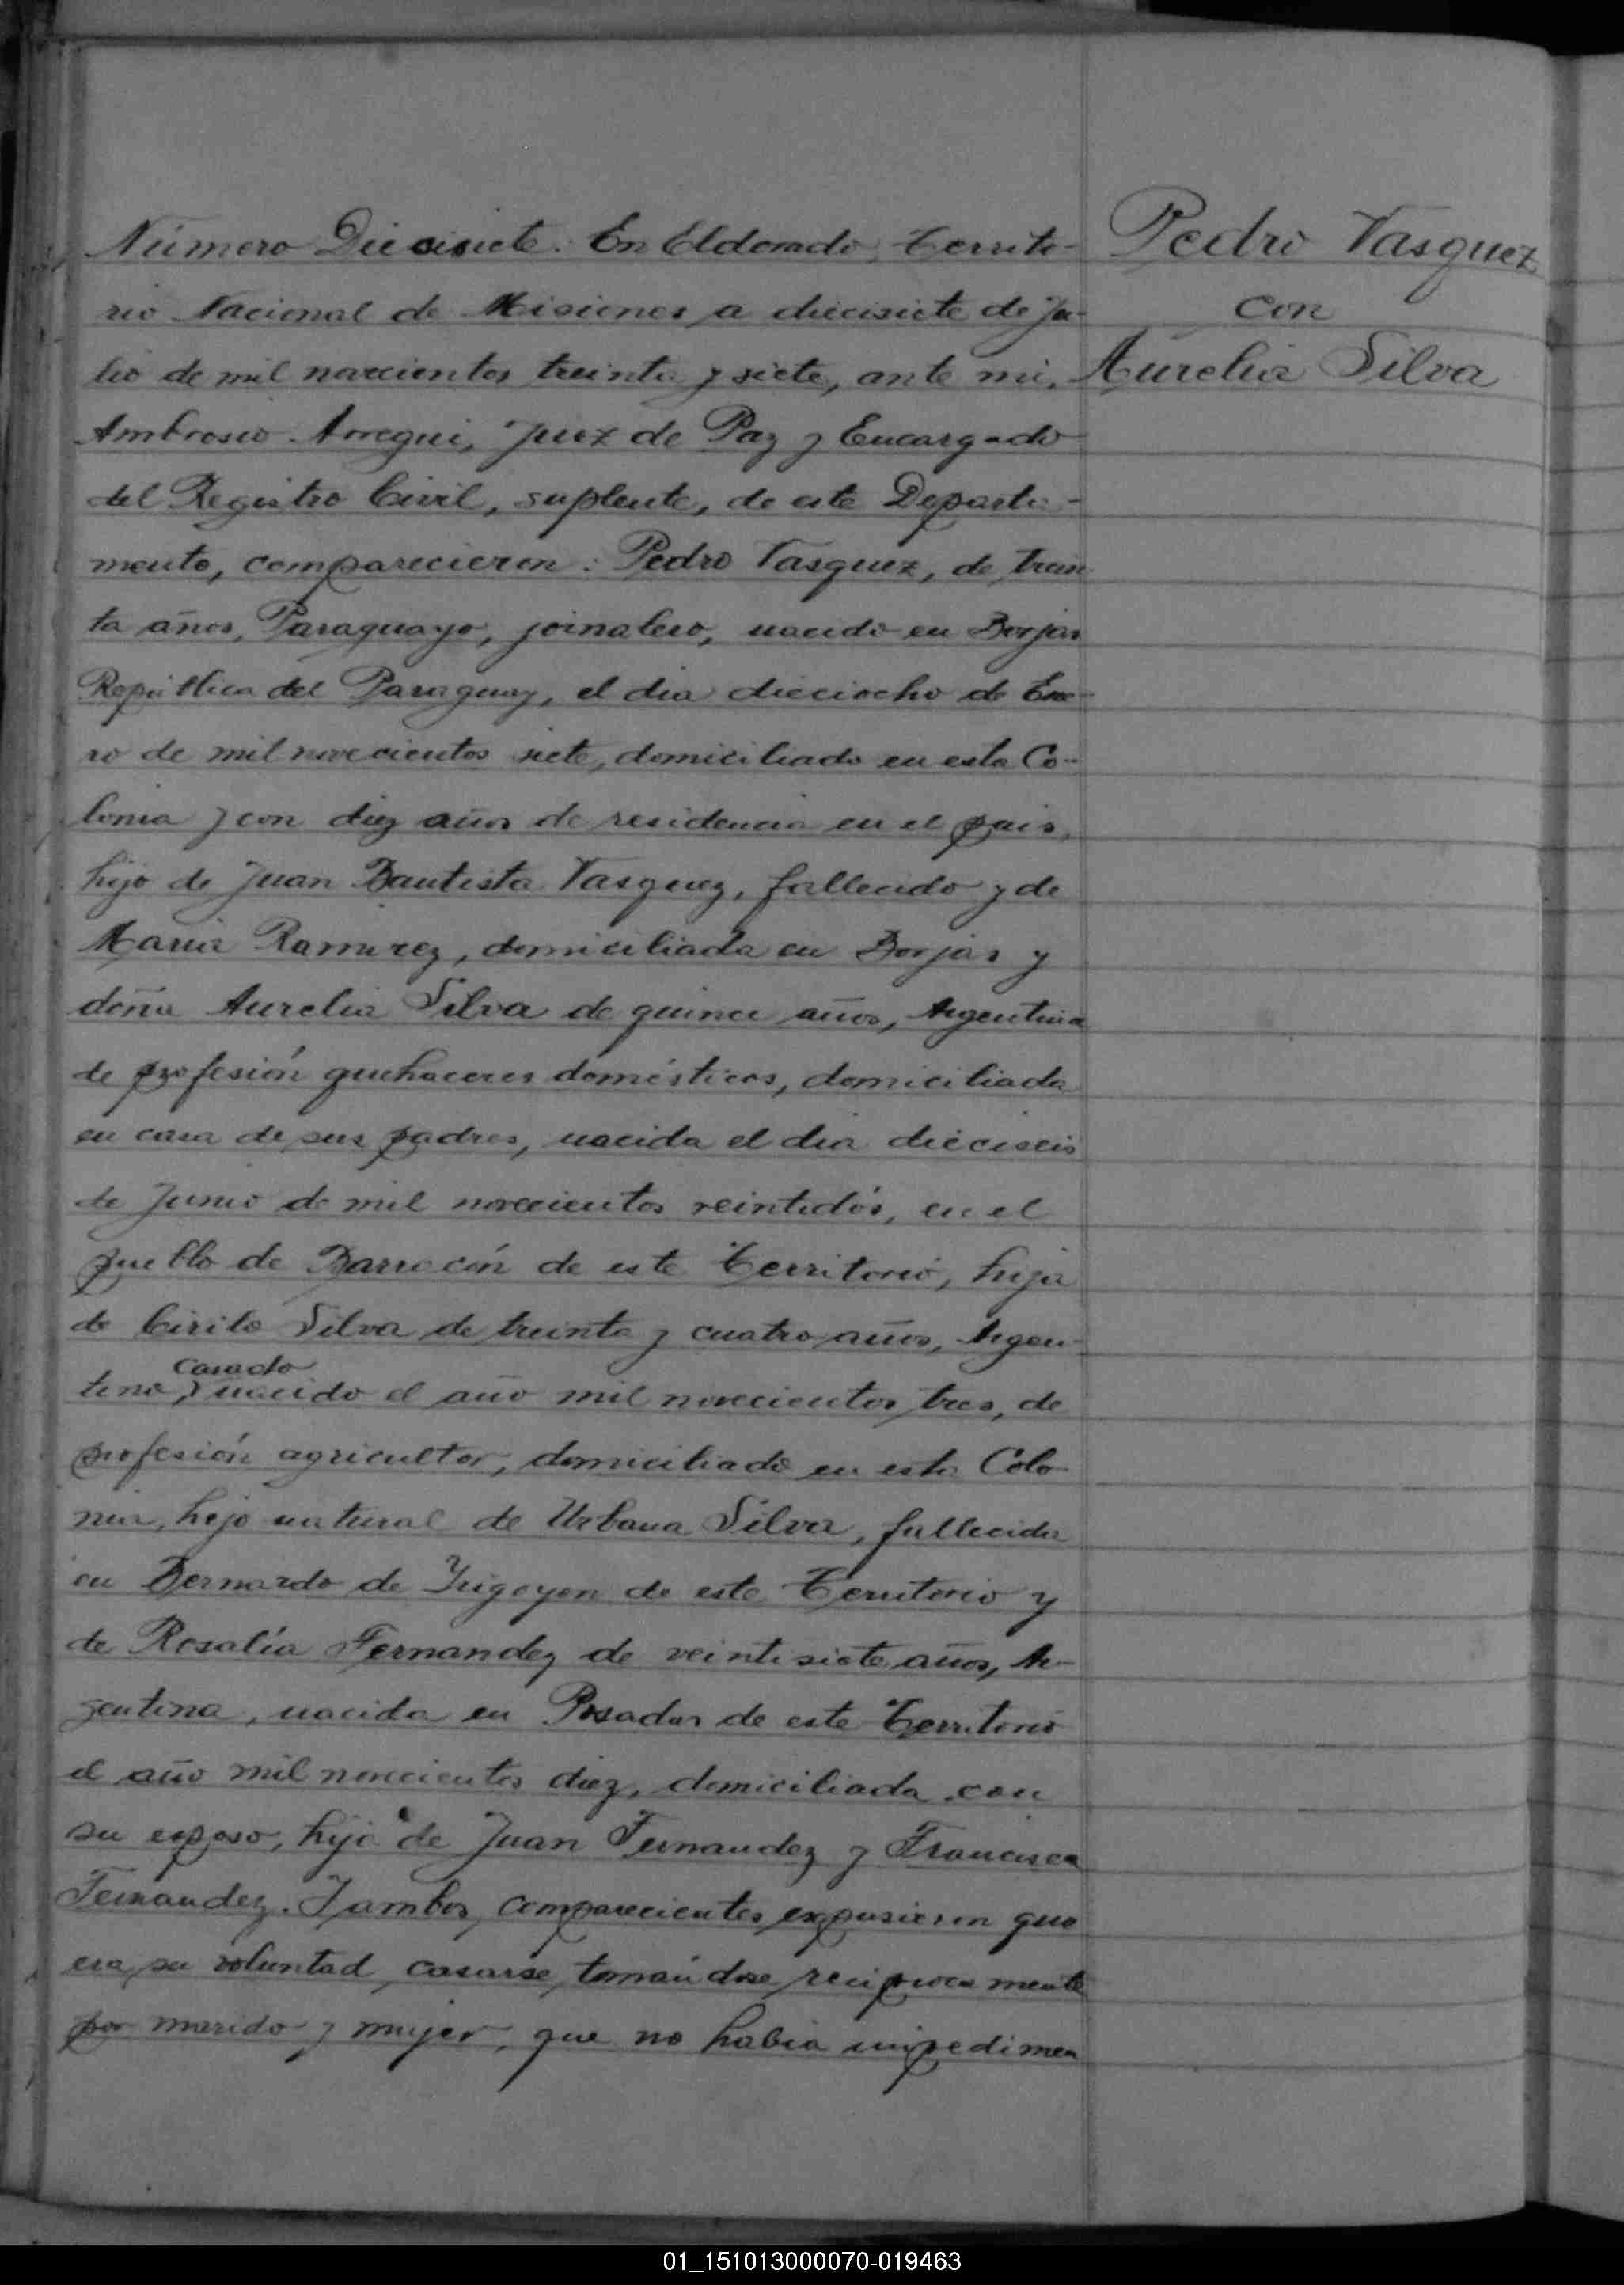 Número Diecisiete. En Eldorado, Territo-
rio Nacional de Misiones a diecisiete de Ju-
lio de mil novecientos treinta y siete, ante mi,
Ambrosio Arregui, Juez de Paz y Encargado
del Registro Civil, suplente, de este Departa-
mento, comparecieron: Pedro Vasquez, de trein
ta años, Paraguayo, jornalero, nacido en Borjas
República del Paraguay, el dia dieciocho de Ene-
ro de mil novecientos siete, domiciliado en esta Co-
lonia y con diez años de residencia en el pais,
hijo de Juan Bautista Vasquez, fallecido y de
Maria Ramirez, domiciliada en Borjas y
doña Aurelia Silva de quince años, Argentina
de profesión quehaceres domésticos, domiciliada
en casa de sus padres, nacida el dia dieciseis
de Junio de mil novecientos veintidós, en el
pueblo de Barracón de este Territorio, hija
de Cirilo Silva de treinta y cuatro años, Argen-
casado
tino, nacido el año mil novecientos tres, de
profesión agricultor, domiciliado en esta Colo-
nia, hijo natural de Urbana Silva, fallecida
en Bernardo de Yrigoyen de este Territorio y
de Rosalía Fernandez de veintisiete años, Ar-
gentina, nacida en Posadas de este Territorio
el año mil novecientos diez, domiciliada con
su esposo, hija de Juan Fernandez y Francisca
Fernandez. Y ambos comparecientes expusieron que
era su voluntad casarse tomándose reciprocamente
por marido y mujer, que no habia impedimen
Pedro Vasquez
con
Aurelia Silva
01_151013000070-019463